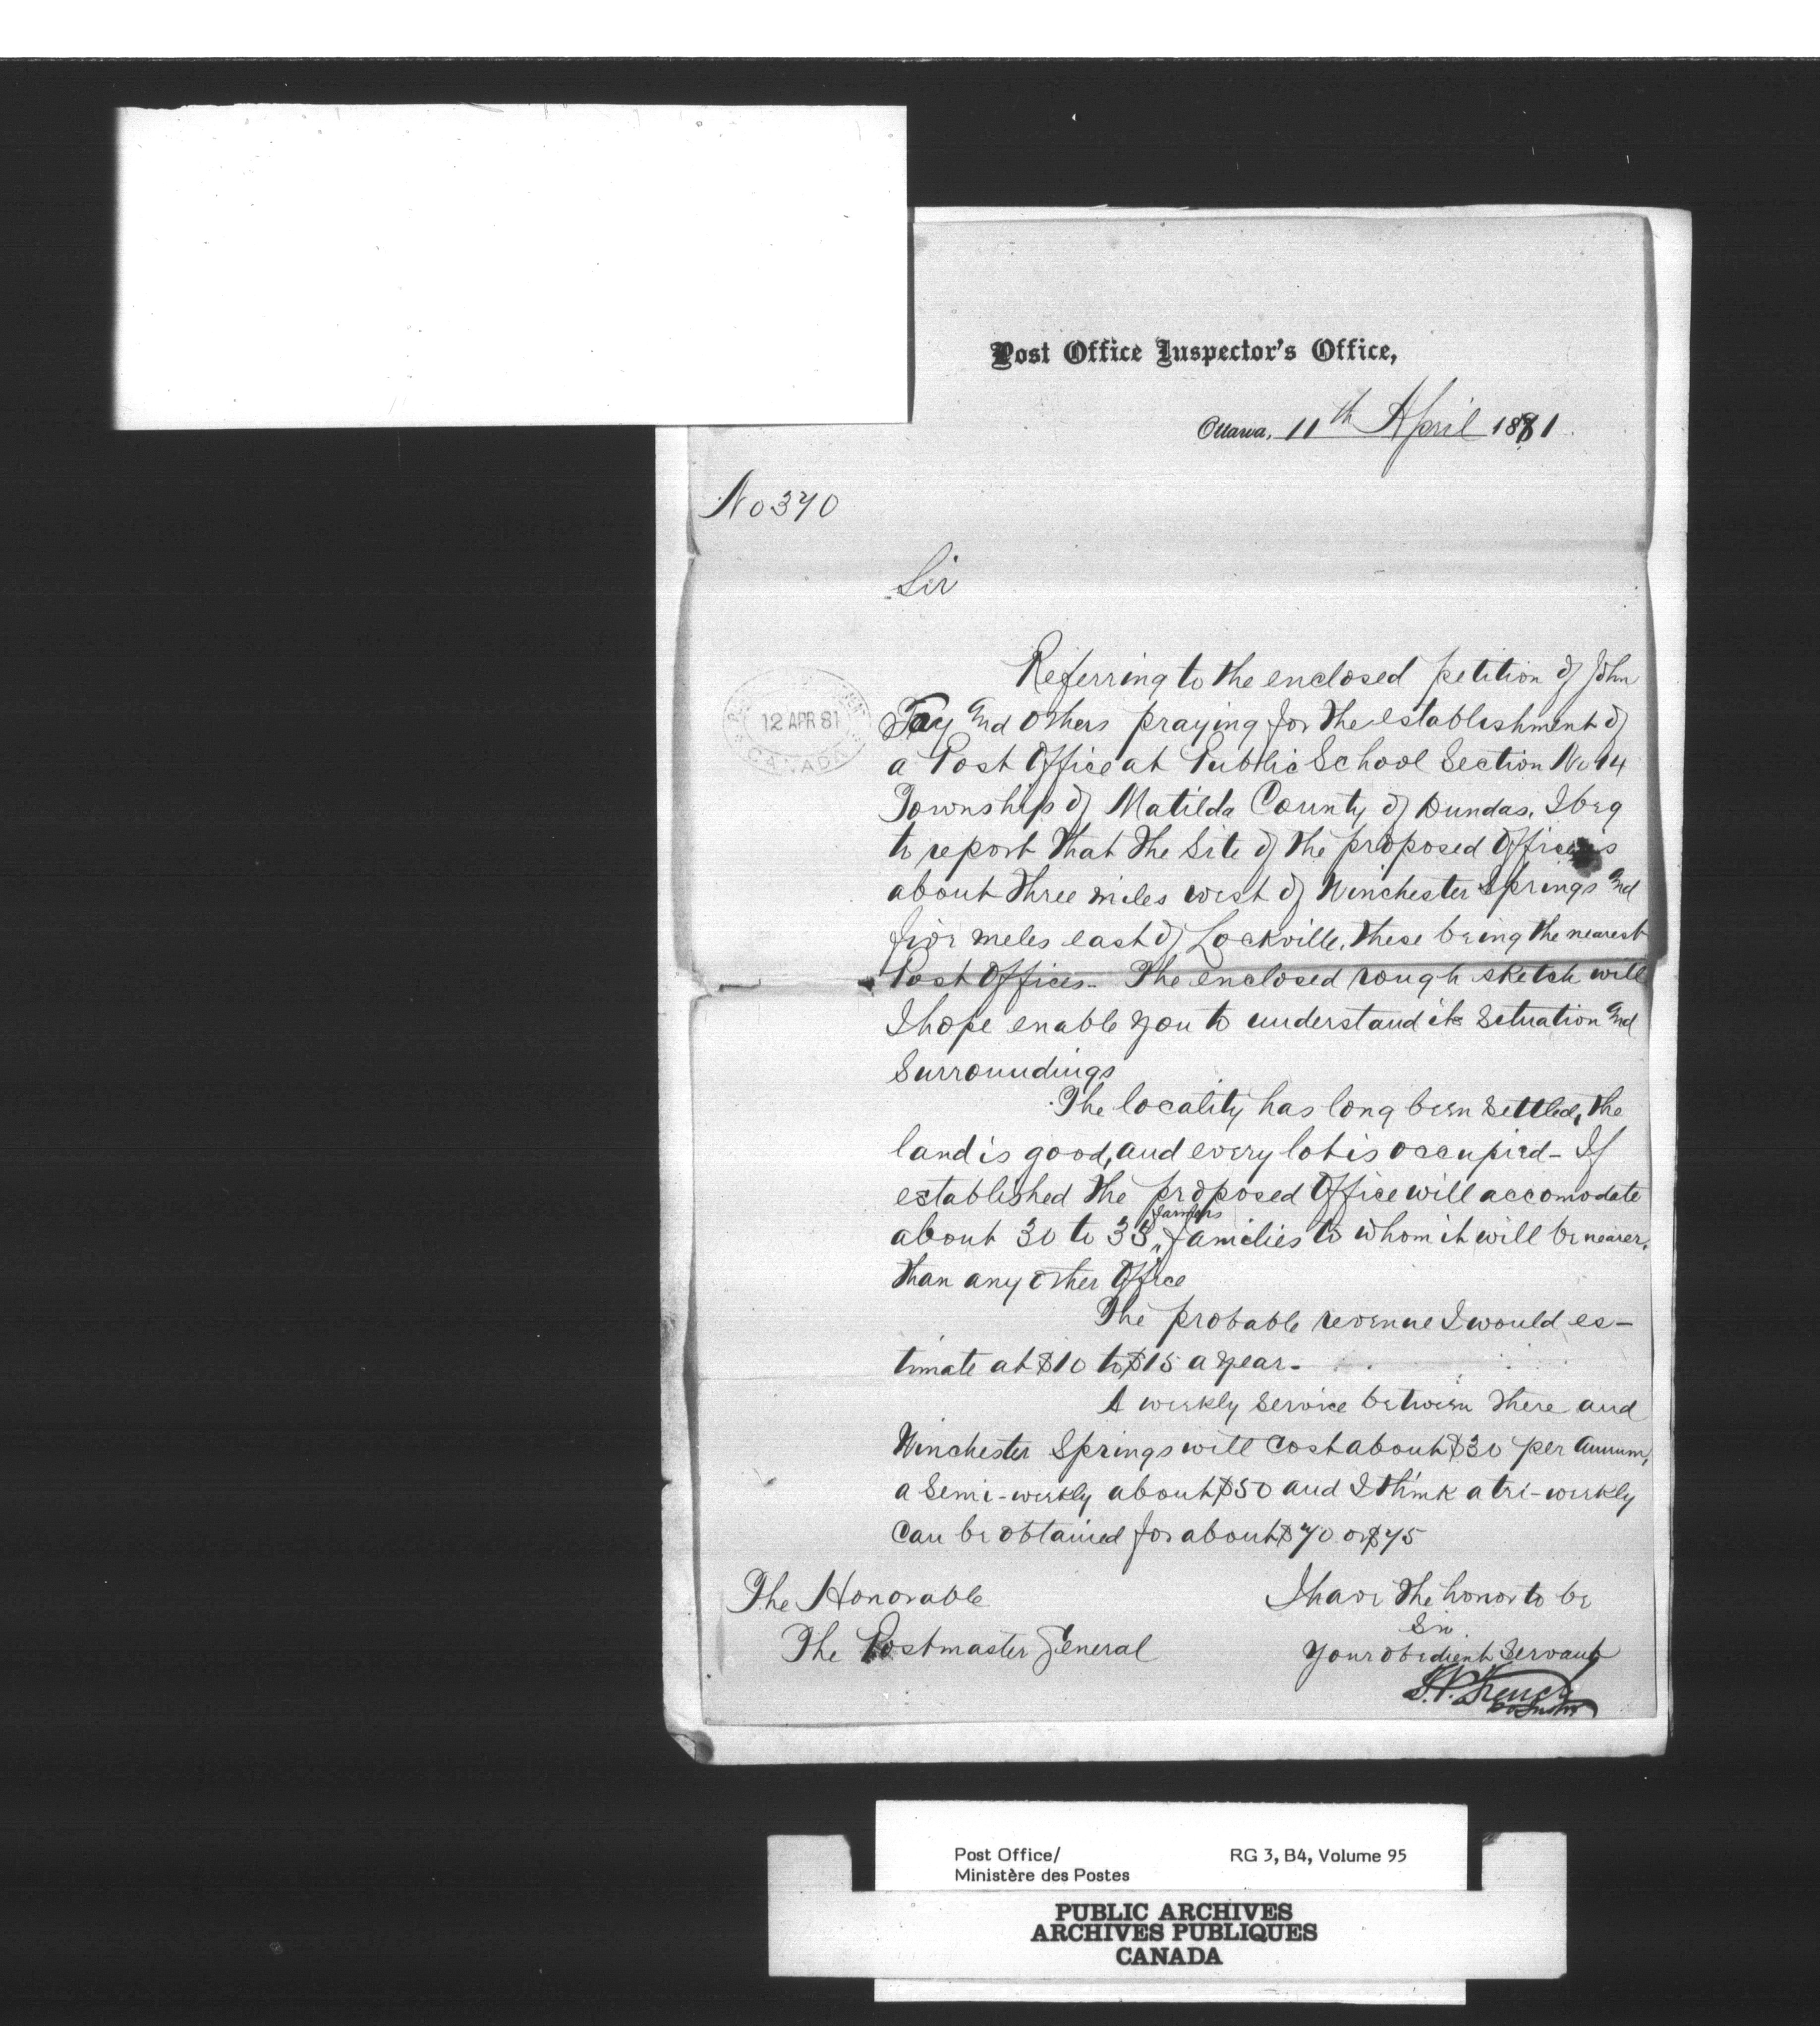 Post Office Inspector's Office,
Ottawa, 11th April 1881
No 370
Sir
Referring to the enclosed petition of John
and others praying for the establishment of
12 APR 81
CANADA
a Post Office at Public School Section No 14
Township of Matilda County of Dundas. I beg
to report that the site of the proposed Office is
about three miles west of Winchester Springs and
five miles east of Lockville, these being the nearest
Post Offices. The enclosed rough sketch will
I hope enable you to understand its situation and
Surroundings
The locality has long been settled, the
land is good, and every lot is occupied - If
established the proposed Office will accomodate
farmers
about 30 to 35 families to whom it will be nearer
than any other Office
The probable revenue I would es-
timate at $10 to $15 a year.
A weekly service between there and
Winchester Springs will cost about $30 per annum,
a Semi-weekly about $50 and I think a tri-weekly
can be obtained for about $70 or $75
The Honorable
The Postmaster General
I have the honor to be
Sir
Your obedient Servant
French
Post Office/
Ministère des Postes
RG 3, B4, Volume 95
PUBLIC ARCHIVES
ARCHIVES PUBLIQUES
CANADA